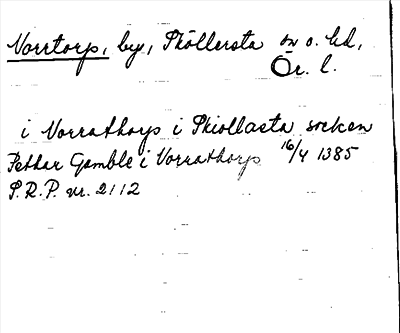 Norrtorp, by, Sköllersta sn o. hd,
Ör. l.
i Norrathorp i Skiollasta socken
Pethar Gamble i Norrathorp 16/4 1385
S.R.P. nr. 2112